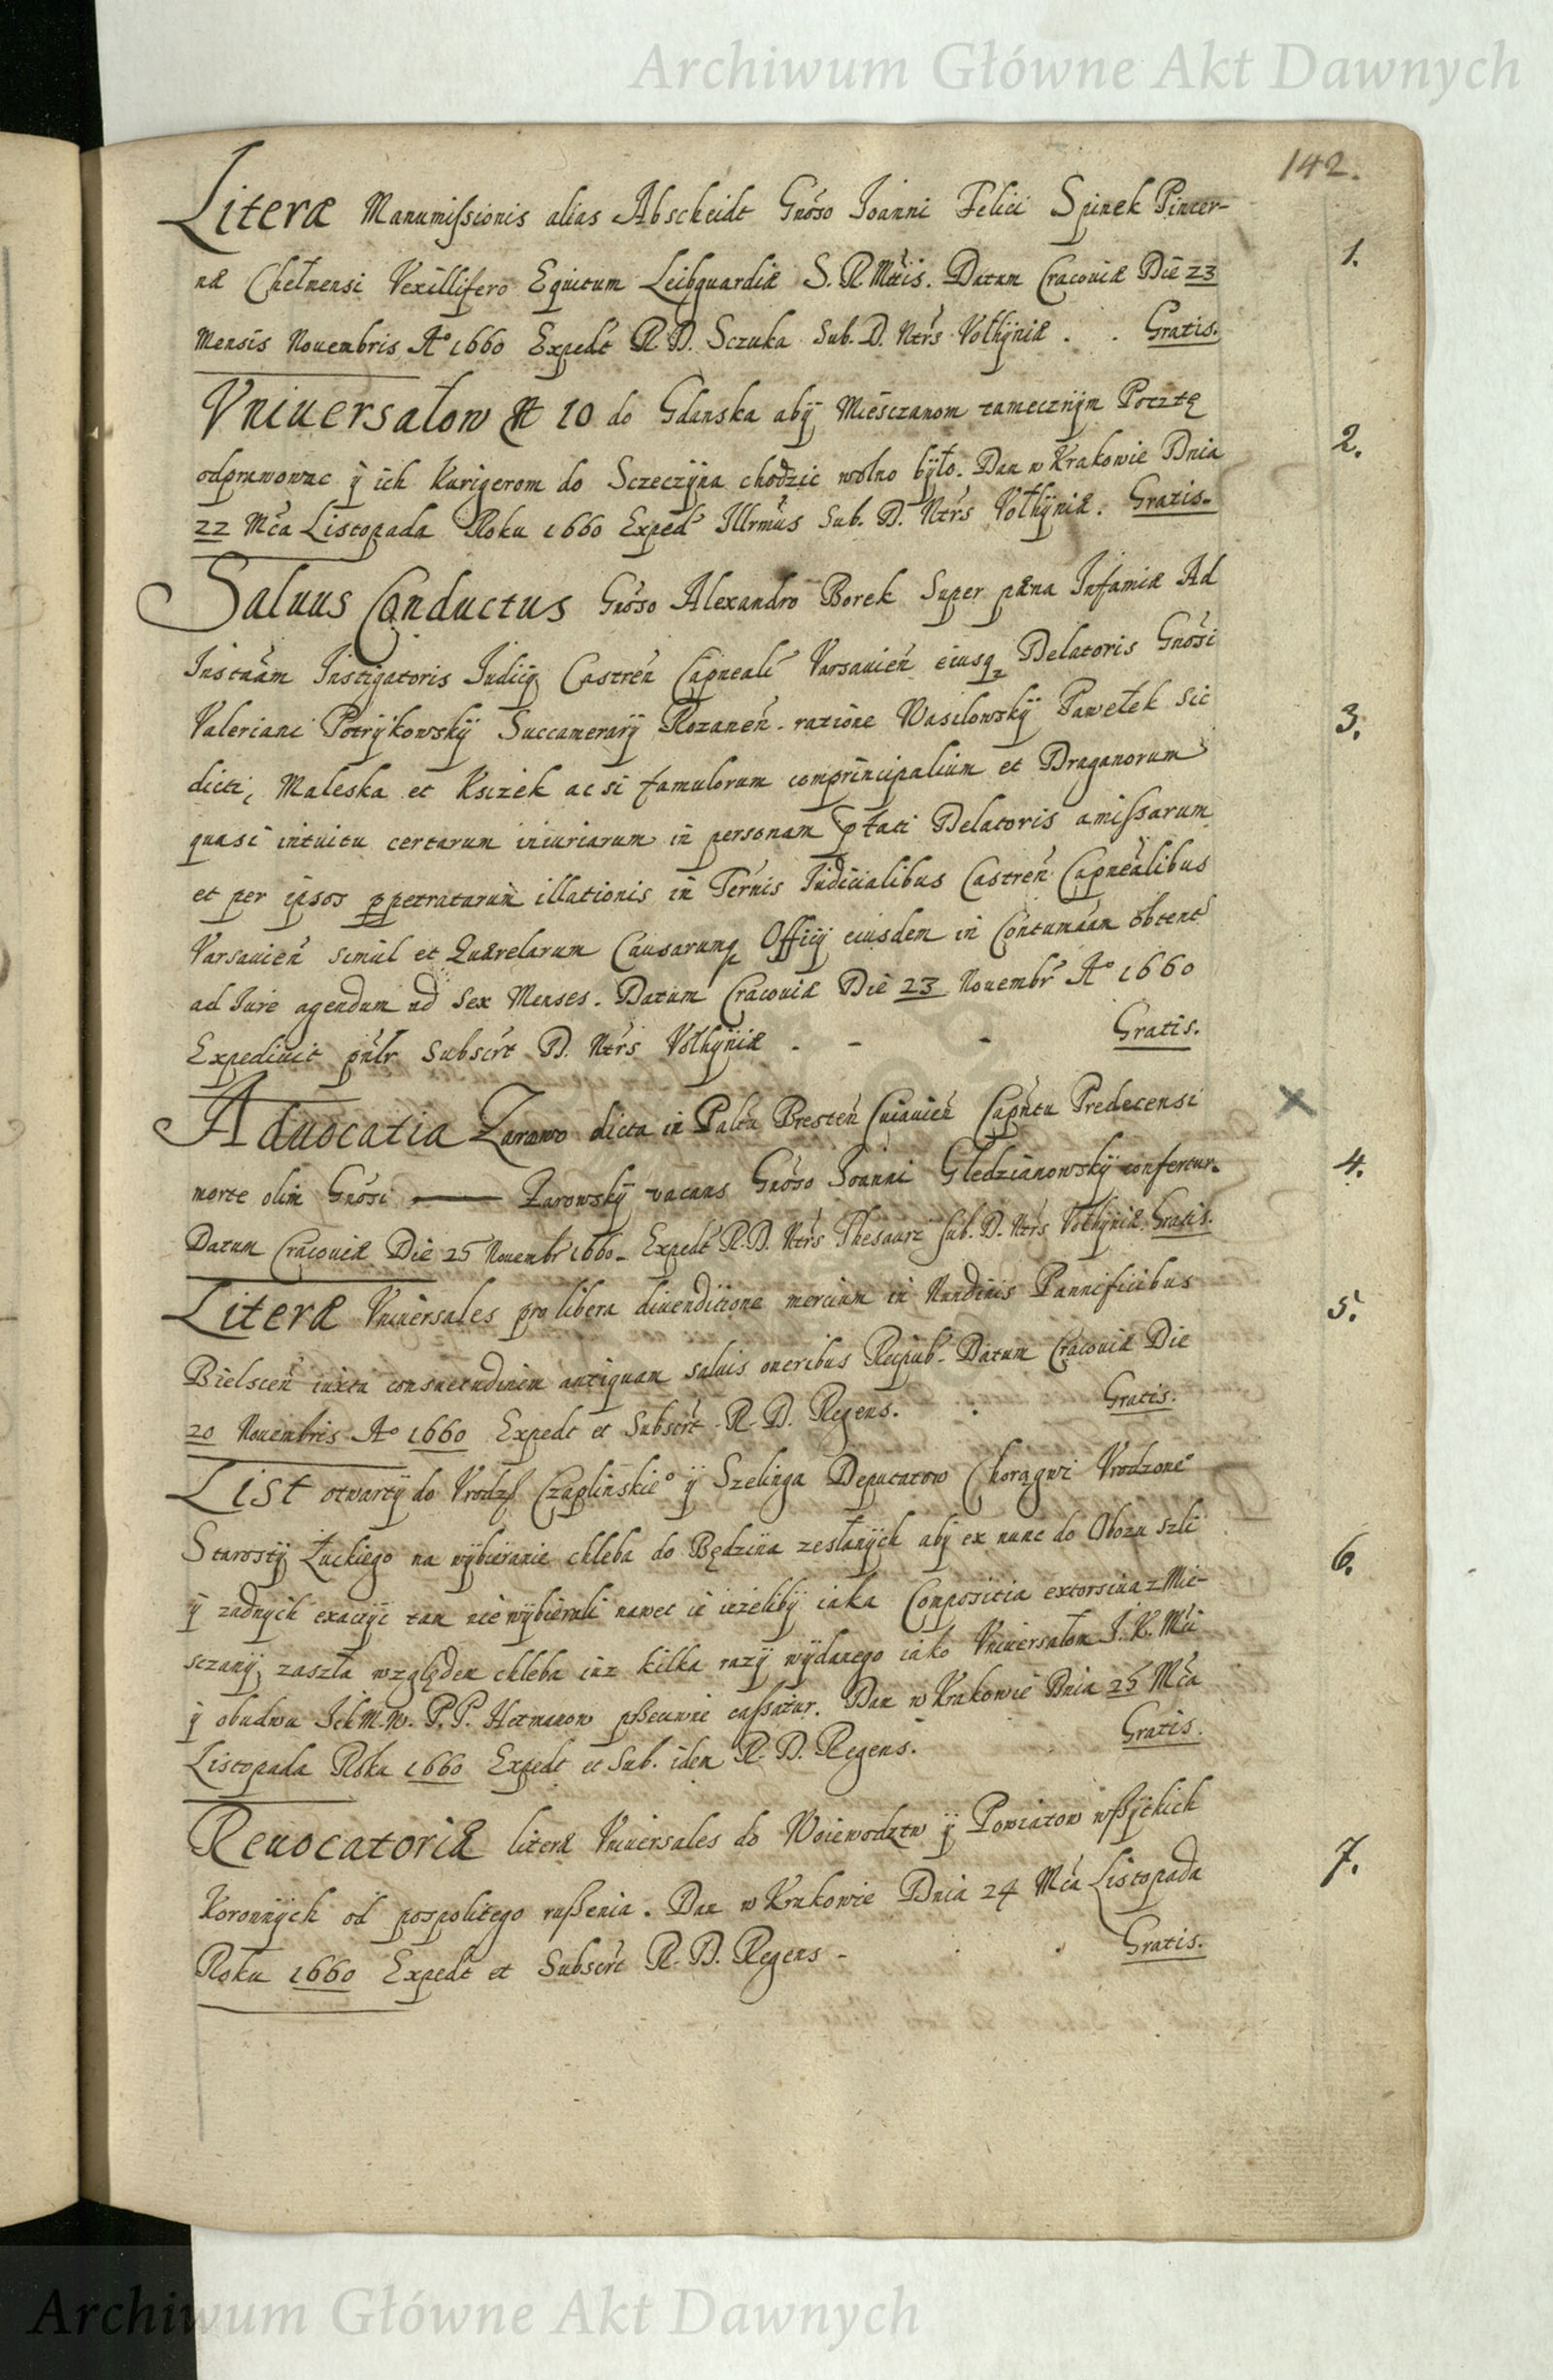 Archiwum Główne Akt Dawnych
142.
Literæ Manumissionis alias Abscheidt Gnoso Ioanni Felici Spinek Pincer-
næ Chełmensi Vexillifero Equitum Leibguardiæ S. R. Mtis. Datum Cracoviæ Die 23
Mensis Nouembris Aº 1660 Expedt R. D. Sczuka Sub. D. Ntrs Volhÿniæ . . Gratis.
1.
Vniuersałow N 10 do Gdanska abÿ Miesczanom tamecznÿm Pocztę
odprawowac ÿ ich Kurigerom do Sczeczÿna chodzic wolno bÿło. Dan w Krakowie Dnia
22 Mca Listopada Roku 1660 Exped Illrmus Sub. D. Ntrs Volhÿniæ. Gratis.
2.
Saluus Conductus Gnoso Alexandro Borek Super pæna Infamiæ Ad
Instnam Instigatoris Iudicÿ Castren Capneali Varsauien eiusq Delatoris Gnosi
Valeriani Potrÿkowskÿ Succamerarÿ Rozanen. ratione Wasilowskÿ Pawełek sic
dicti, Maleska et Ksizek ac si famulorum comprincipalium et Draganorum
quasi intuitu certarum iniuriarum in personam ptati Delatoris amissarum
et per ipsos ppetratarum illationis in Ternis Iudicialibus Castren Capnealibus
Varsauien simul et Quærelarum Causarumq Officÿ eiusdem in Contumaam obtent
ad Iure agendum ad Sex Menses. Datum Cracouiæ Die 23 Nouembr Aº 1660
Expediuit pnlr Subscrt D. Ntrs Volhÿniæ . - - Gratis.
3.
Aduocatia Zarowo dicta in Paltu Bresten Cuiauien Capntu Predecensi
morte olim Gnosi —— Zarowskÿ vacans Gnoso Ioanni Gledzianowskÿ confertur.
Datum Cracouiæ Die 25 Nouembr 1660. Expedt R. D. Ntrs Thesauri Sub. D. Ntrs Volhÿniæ. Gratis.
4.
Literæ Vniuersales pro libera diuenditione mercium in Nundinis Pannificibus
Bielscen iuxta consuetudinem antiquam saluis oneribus Reipub. Datum Cracouiæ Die
20 Nouembris Aº 1660 Expedt et Subscrt R. D. Regens. . Gratis.
5.
List otwartÿ do Vrodz Czaplinskieº ÿ Szelinga Deputatow Chorągwi Vrodzoneº
Starostÿ Łuckiego na wÿbieranie chleba do Będzina zesłanÿch abÿ ex nunc do Obozu szli
ÿ zadnÿch exactÿi tam nie wÿbierali nawet ie iezelibÿ iaka Compositia extorsiua z Mie-
sczanÿ zaszła względem chleba iuz kilka razÿ wÿdanego iako Vniuersałom I. K. Mci
ÿ obudwu Ich M. W. P. P. Hetmanow pßeciwnie cassatur. Dan w Krakowie Dnia 25 Mca
Listopada Roku 1660 Expedt et Sub. idem R. D. Regens. Gratis.
6.
Reuocatoriæ literæ Vniuersales do Woiewodztw ÿ Powiatow wßÿtkich
Koronnÿch od pospolitego rußenia. Dan w Krakowie Dnia 24 Mca Listopada
Roku 1660 Expedt et Subscrt R. D. Regens - . . Gratis.
7.
Archiwum Główne Akt Dawnych